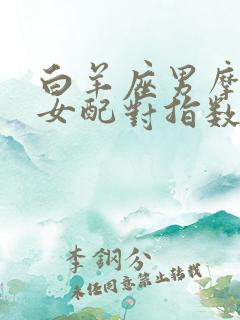 白羊座男摩
女配對指数
李鋼分
未经同意禁止转载